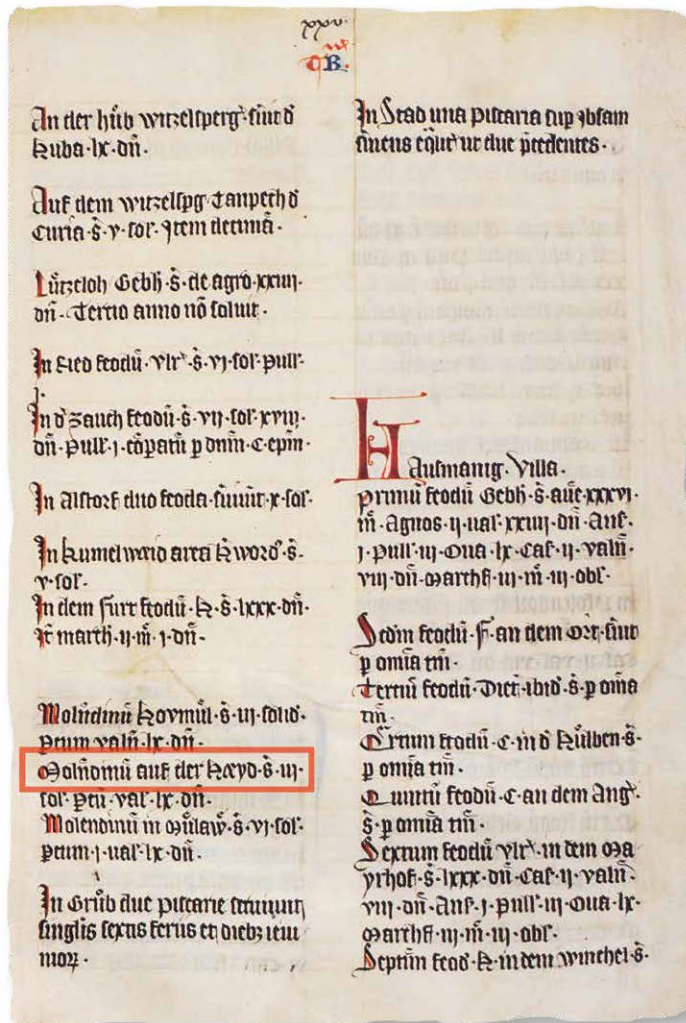 xxv.
C B.
An der hůb witzelsperg sůit d
huba · lx · dn̄ ·
Auf dem witzelspg Tanpeth d
Curia · s̄ · v · sol · Item decimā ·
Lůtzeloh Gebh · s̄ · de agro · xxiiij ·
dn̄ · Tertio anno nō soluit ·
In Ried feodū · vlr · s̄ · vj · sol · pull ·
In d Zauch feodū · s̄ · vij · sol · xviij ·
dn̄ · pull · j · cōpatū p dnm̄ · C · epm̄ ·
In Alstorf duo feoda · x · sol ·
In area · s̄ ·
v · sol ·
In dem furt feodū · H · s̄ · lxxx · dn̄ ·
It marth · ij · m̄ · j · dn̄ ·
Molndinū Hovmůl · s̄ · iij · solid ·
pcum valn̄ · lx · dn̄ ·
Molndinū auf der Hæyd · s̄ · iij ·
sol · pcū · val · lx · dn̄ ·
Molendinū in Můlaw · s̄ · vj · sol ·
pcum · j · ual · lx · dn̄ ·
In Grůb due piscarie seruiunt
singlis sextis feriis et dieb ieiu
nioꝝ ·
In Stad una piscaria sup ibsam
siuens eq̄lit ut due p̄cedentes ·
Hausmanig · Villa ·
primū feodū Gebh · s̄ · xxxvi ·
m̄ · Agnos · ij · ual · xxiiij · dn̄ · Ans ·
j · pull · iij · Oua · lx · Cas · ij · valn̄ ·
viij · dn̄ · Marthss · iij · m̄ · iij · obl ·
Scdm feodū · F · an dem Ort · siuit
p omīa tm̄ ·
Tertiū feodū · Diet · ibid · s̄ · p omīa
tm̄ ·
Qrtum feodū · C · in d Kůlben · s̄ ·
p omīa tm̄ ·
Quintū feodū · C · an dem Ang ·
s̄ · p omīa tm̄ ·
Sextum feodū vlr · in dem Ma
yrhof · s̄ · lxxx · dn̄ · Cas · ij · valn̄ ·
viij · dn̄ · Ans · j · pull · iij · Oua · lx ·
Marthss · iij · m̄ · iij · obl ·
Septim̄ feod · H · in dem winchel · s̄ ·